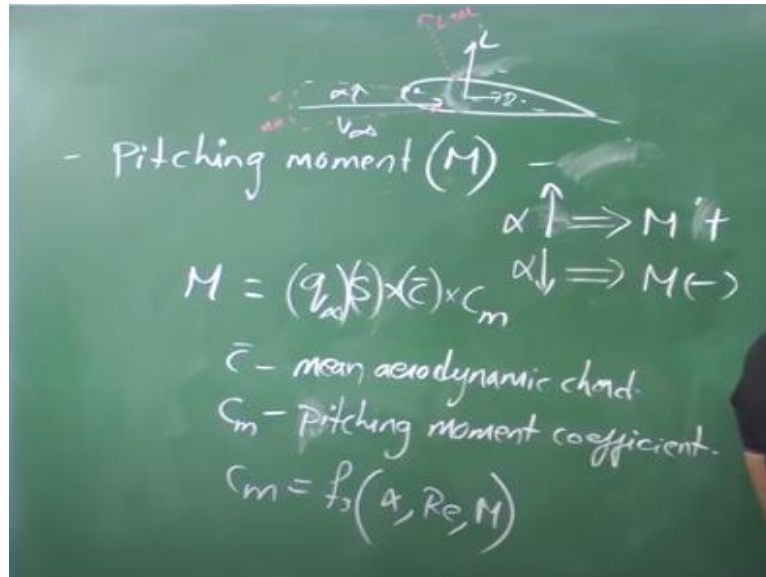 L
α↑
D.
V∞
- Pitching moment (M) -
α ↑ ⇒ M +
α↓ ⇒ M(-)
M = (q∞)(S)×(c̄)×Cm
c̄ - mean aerodynamic chord.
Cm - pitching moment coefficient.
Cm = f₃(α, Re, M)